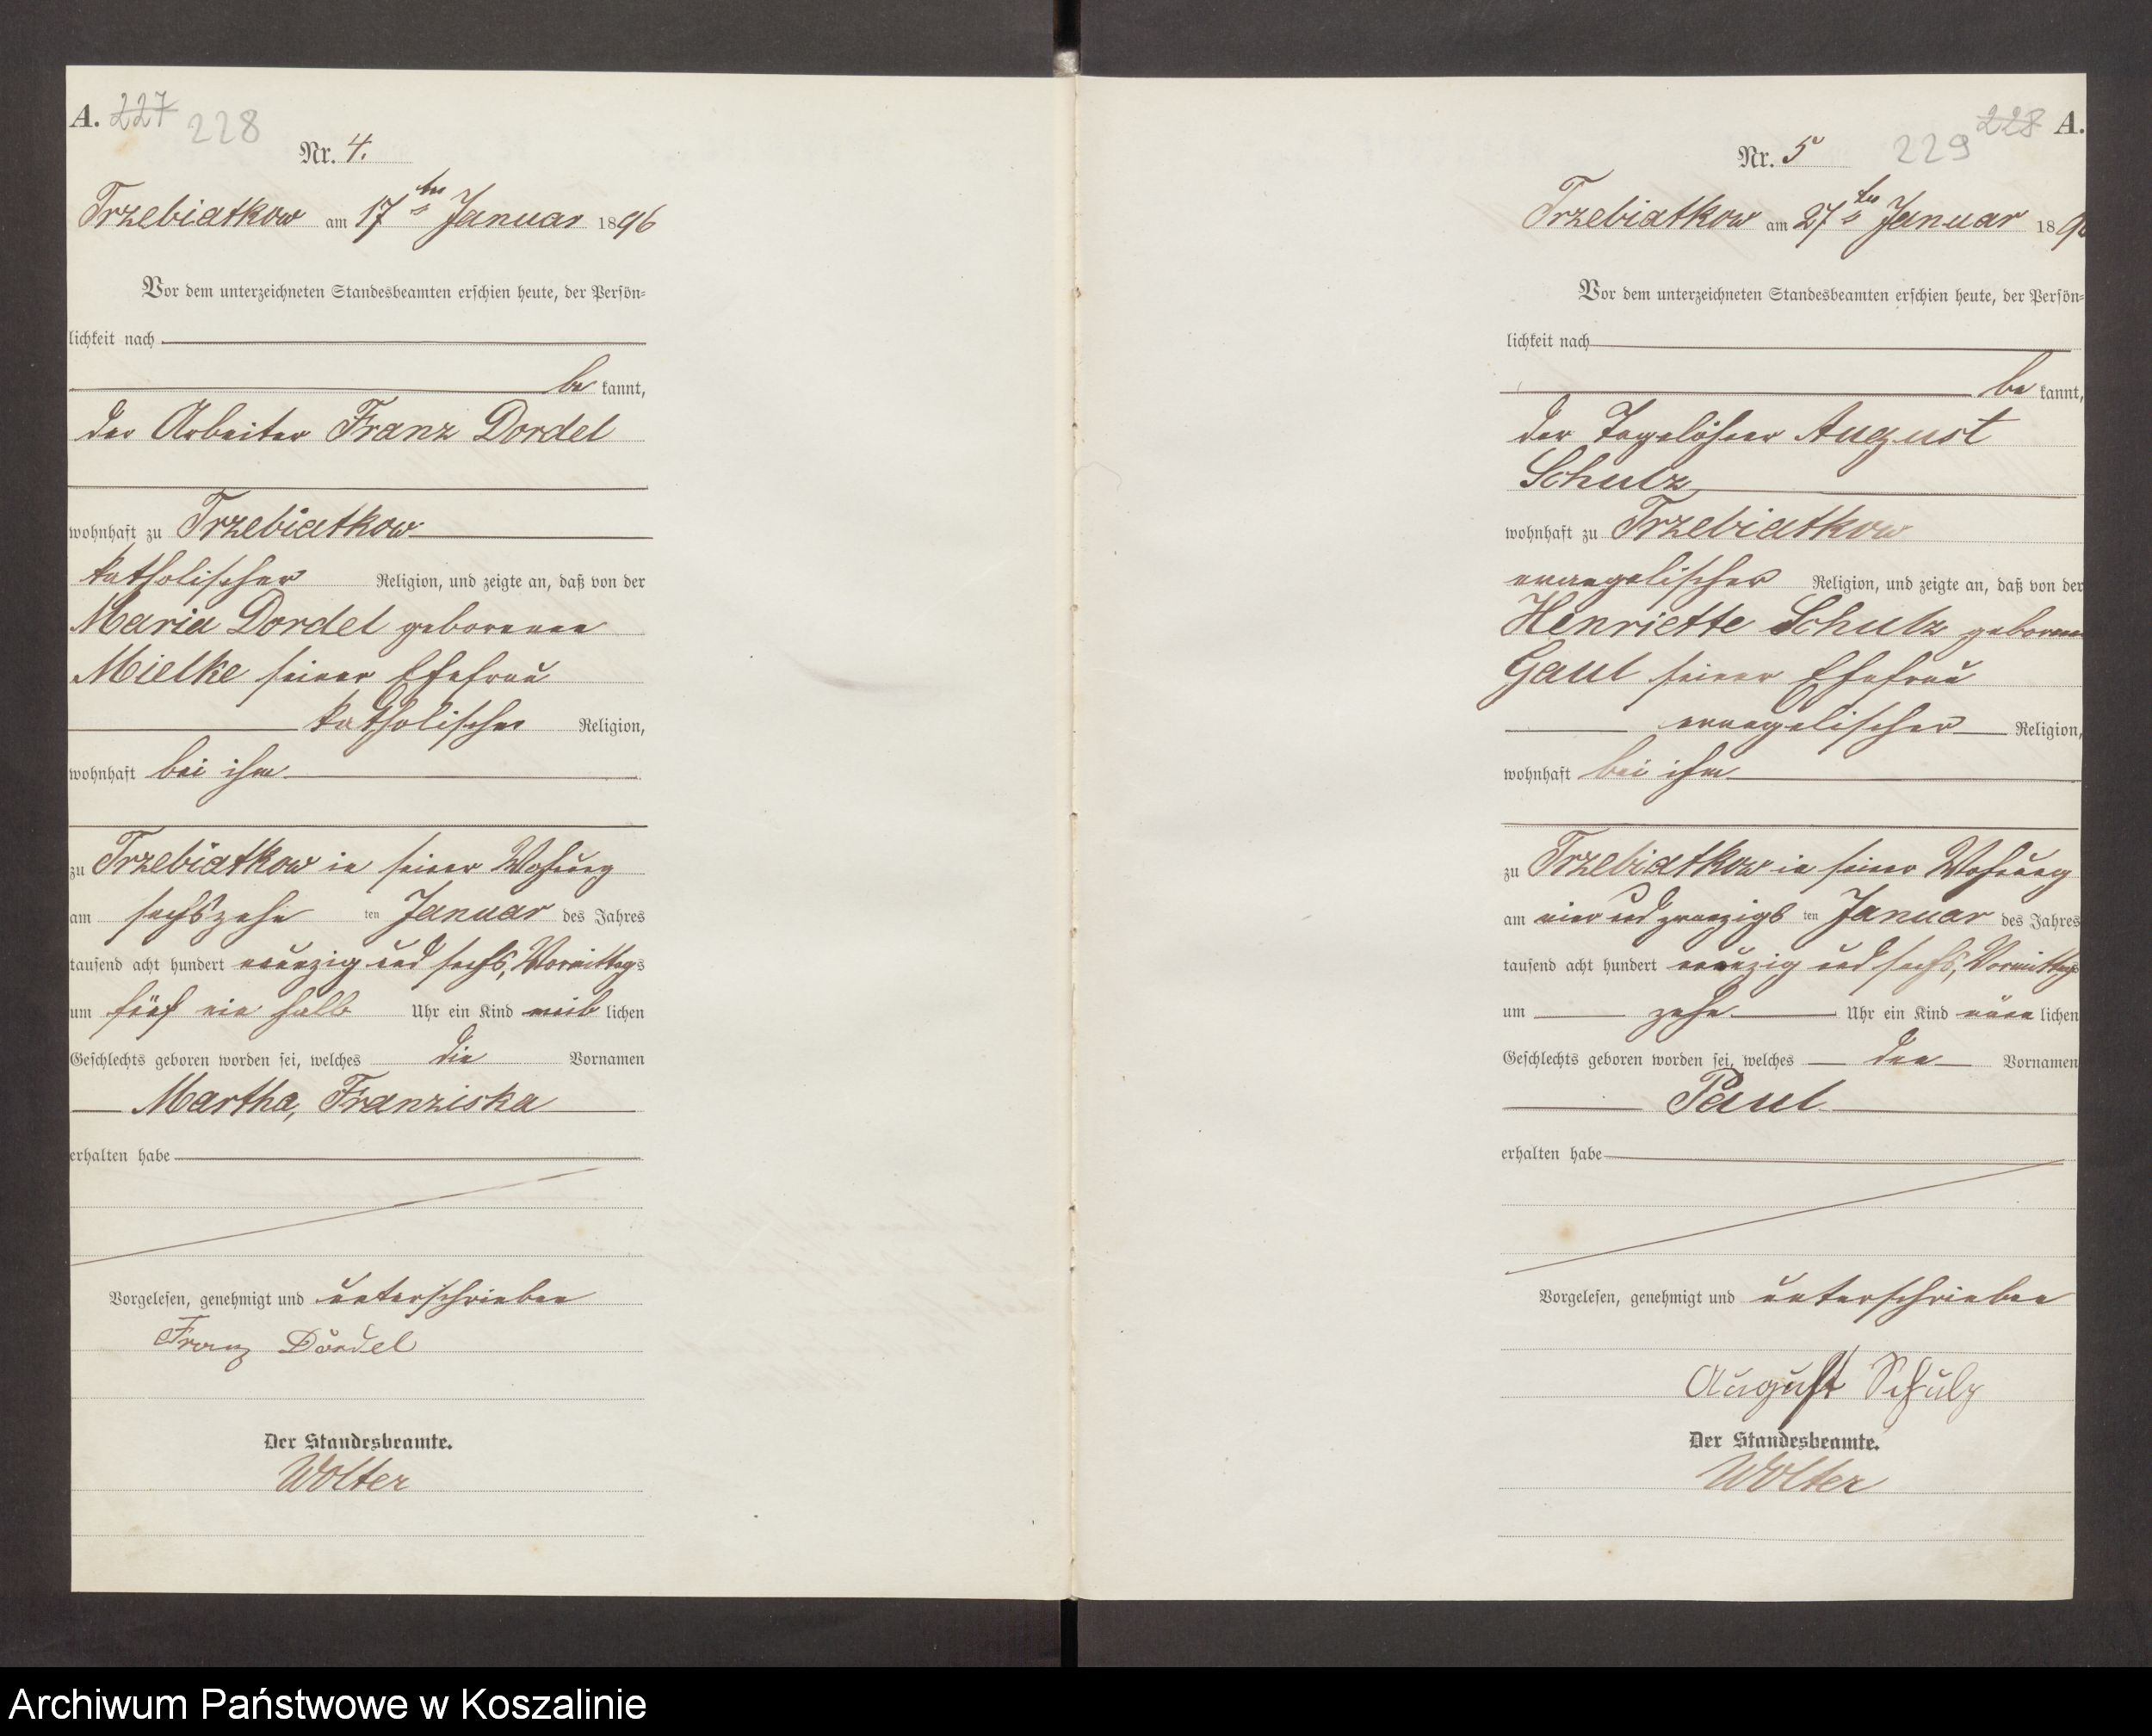 A. 227 228
Nr. 4.
Trzebiatkow am 17ten Januar 1896
Vor dem unterzeichneten Standesbeamten erschien heute, der Persön-
lichkeit nach
be kannt,
der Arbeiter Franz Dordel
wohnhaft zu Trzebiatkow
katholischer Religion, und zeigte an, daß von der
Maria Dordel geborenen
Mielke seiner Ehefrau
katholischer Religion,
wohnhaft bei ihm
zu Trzebiatkow in seiner Wohung
am sechszehn ten Januar des Jahres
tausend acht hundert neunzig und sechs, Vormittags
um fünf ein halb Uhr ein Kind weib lichen
Geschlechts geboren worden sei, welches die Vornamen
Martha, Franziska
erhalten habe
Vorgelesen, genehmigt und unterschrieben
Franz Dordel
Der Standesbeamte.
Wolter
228 A.
Nr. 5 229
Trzebiatkow am 27ten Januar 189
Vor dem unterzeichneten Standesbeamten erschien heute, der Persön-
lichkeit nach
be kannt,
der Tagelöhner August
Schulz
wohnhaft zu Trzebiatkow
evangelischer Religion, und zeigte an, daß von der
Henriette Schulz geborenen
Gaul seiner Ehefrau
evangelischer Religion,
wohnhaft bei ihm
zu Trzebiatkow in seiner Wohnung
am vier und zwanzigs ten Januar des Jahres
tausend acht hundert neunzig und sechs, Vormittags
um zehn Uhr ein Kind männ lichen
Geschlechts geboren worden sei, welches den Vornamen
Paul
erhalten habe
Vorgelesen, genehmigt und unterschrieben
August Schulz
Der Standesbeamte.
Wolter
Archiwum Państwowe w Koszalinie